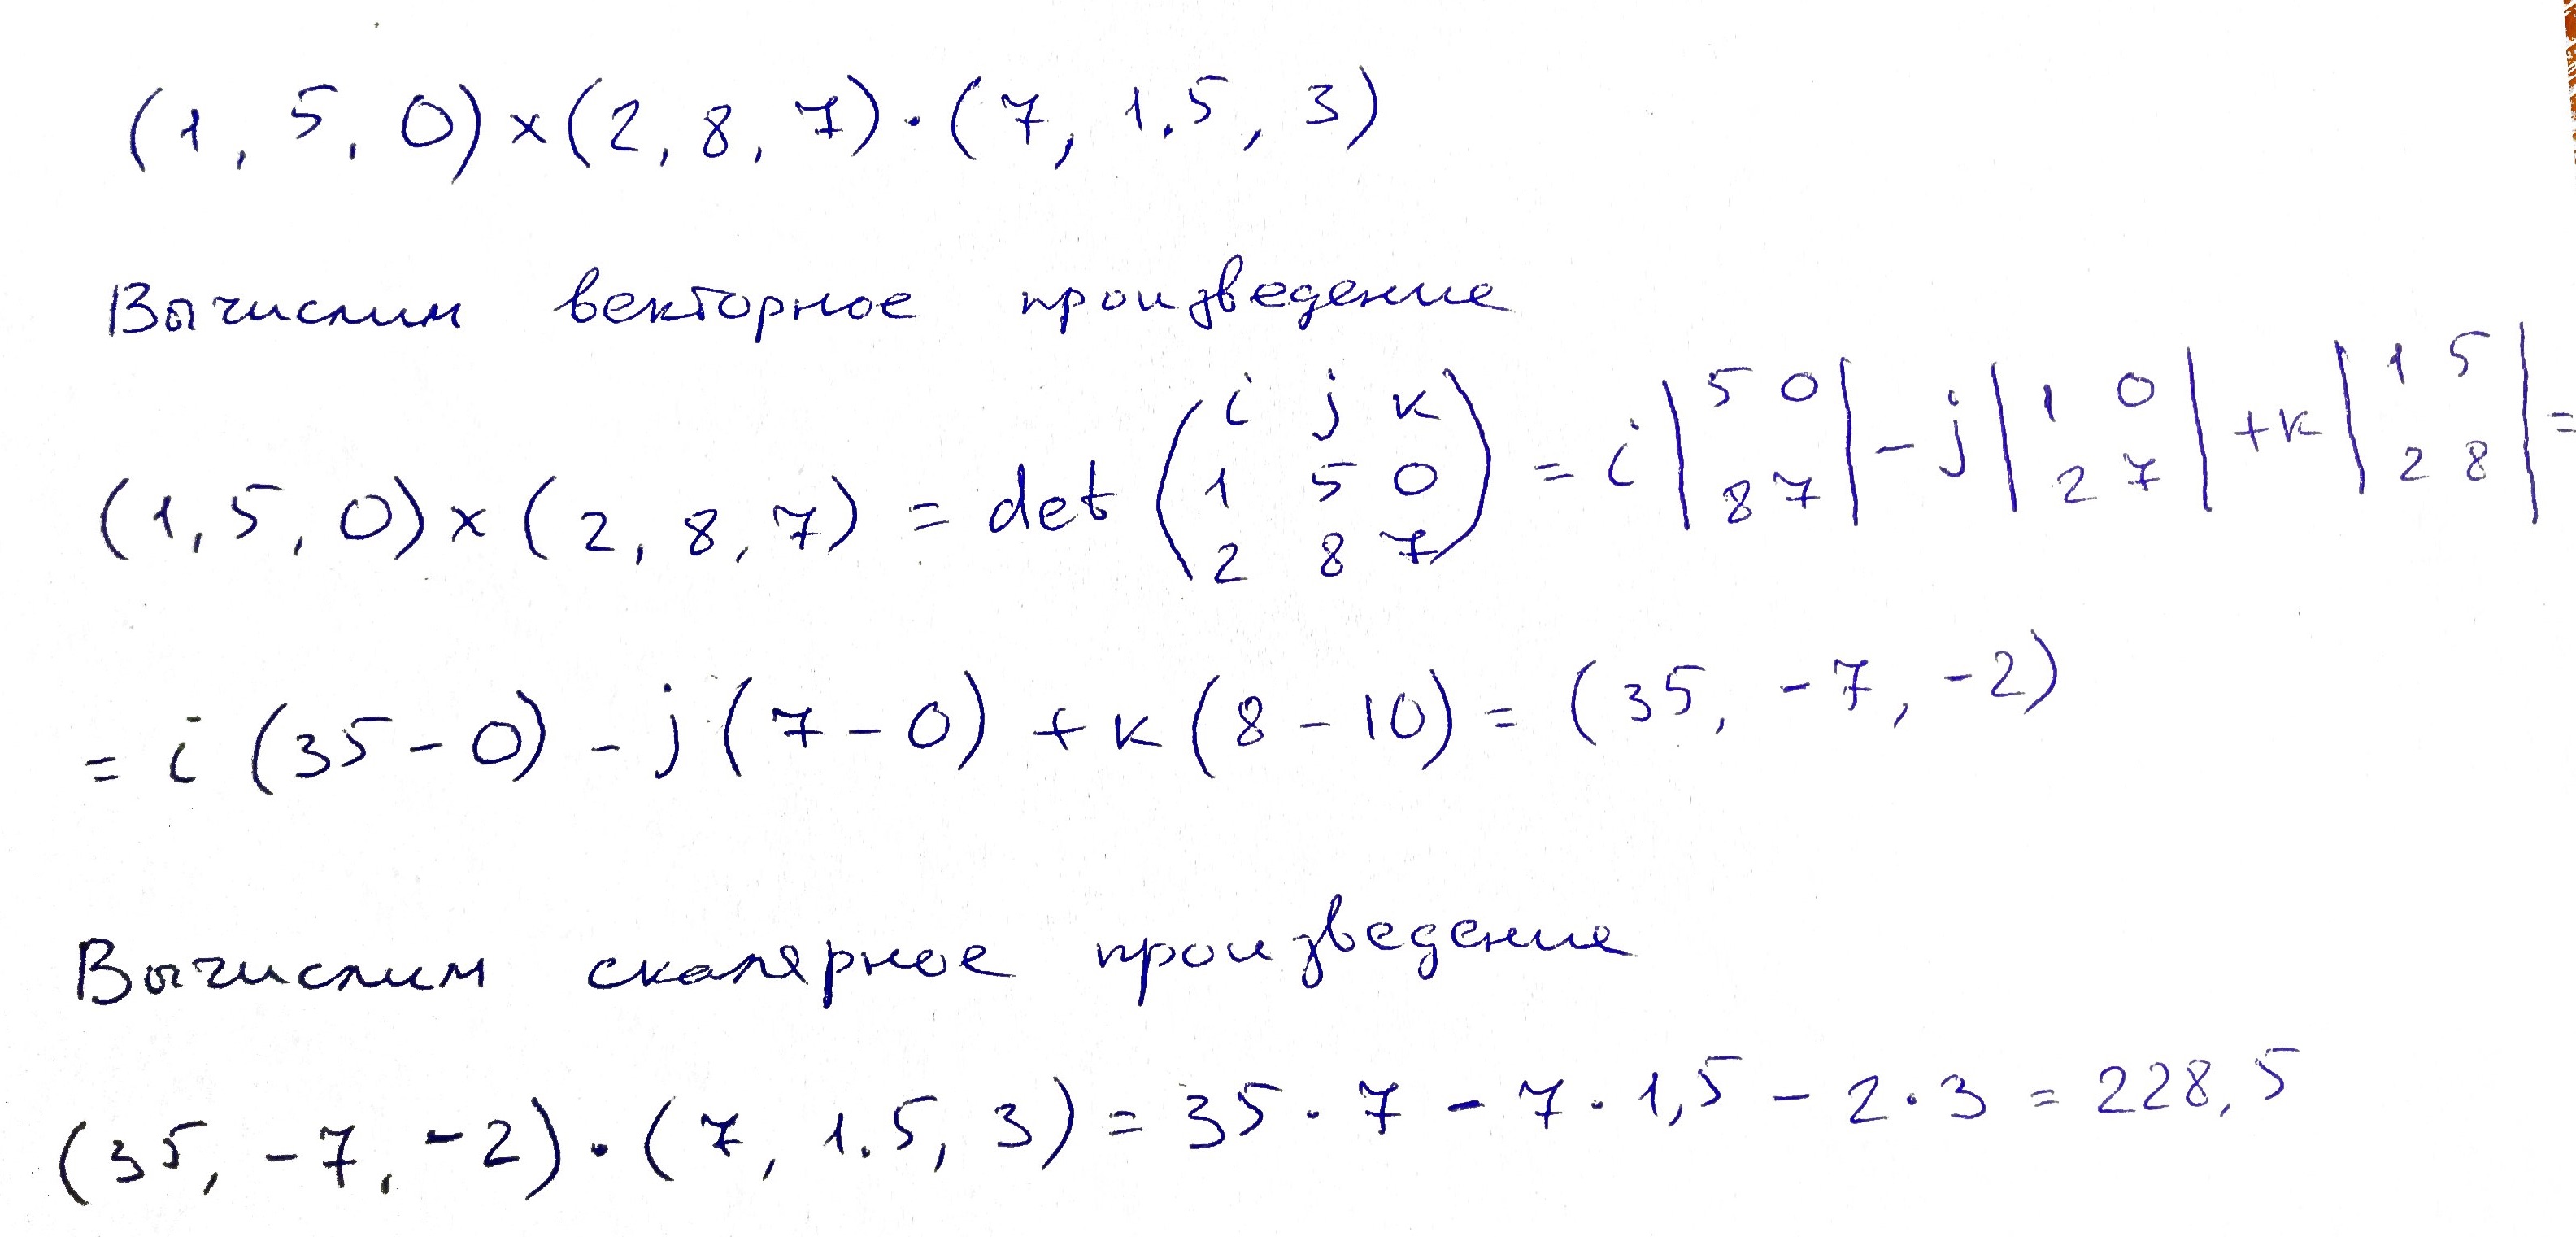 (1, 5, 0) × (2, 8, 7) · (7, 1.5, 3)
Вычислим векторное произведение
(1, 5, 0) × (2, 8, 7) = det (i j k
1 5 0
2 8 7) = i |5 0
8 7| - j |1 0
2 7| + k |1 5
2 8| =
= i (35 - 0) - j (7 - 0) + k (8 - 10) = (35, -7, -2)
Вычислим скалярное произведение
(35, -7, -2) · (7, 1.5, 3) = 35 · 7 - 7 · 1,5 - 2 · 3 = 228,5